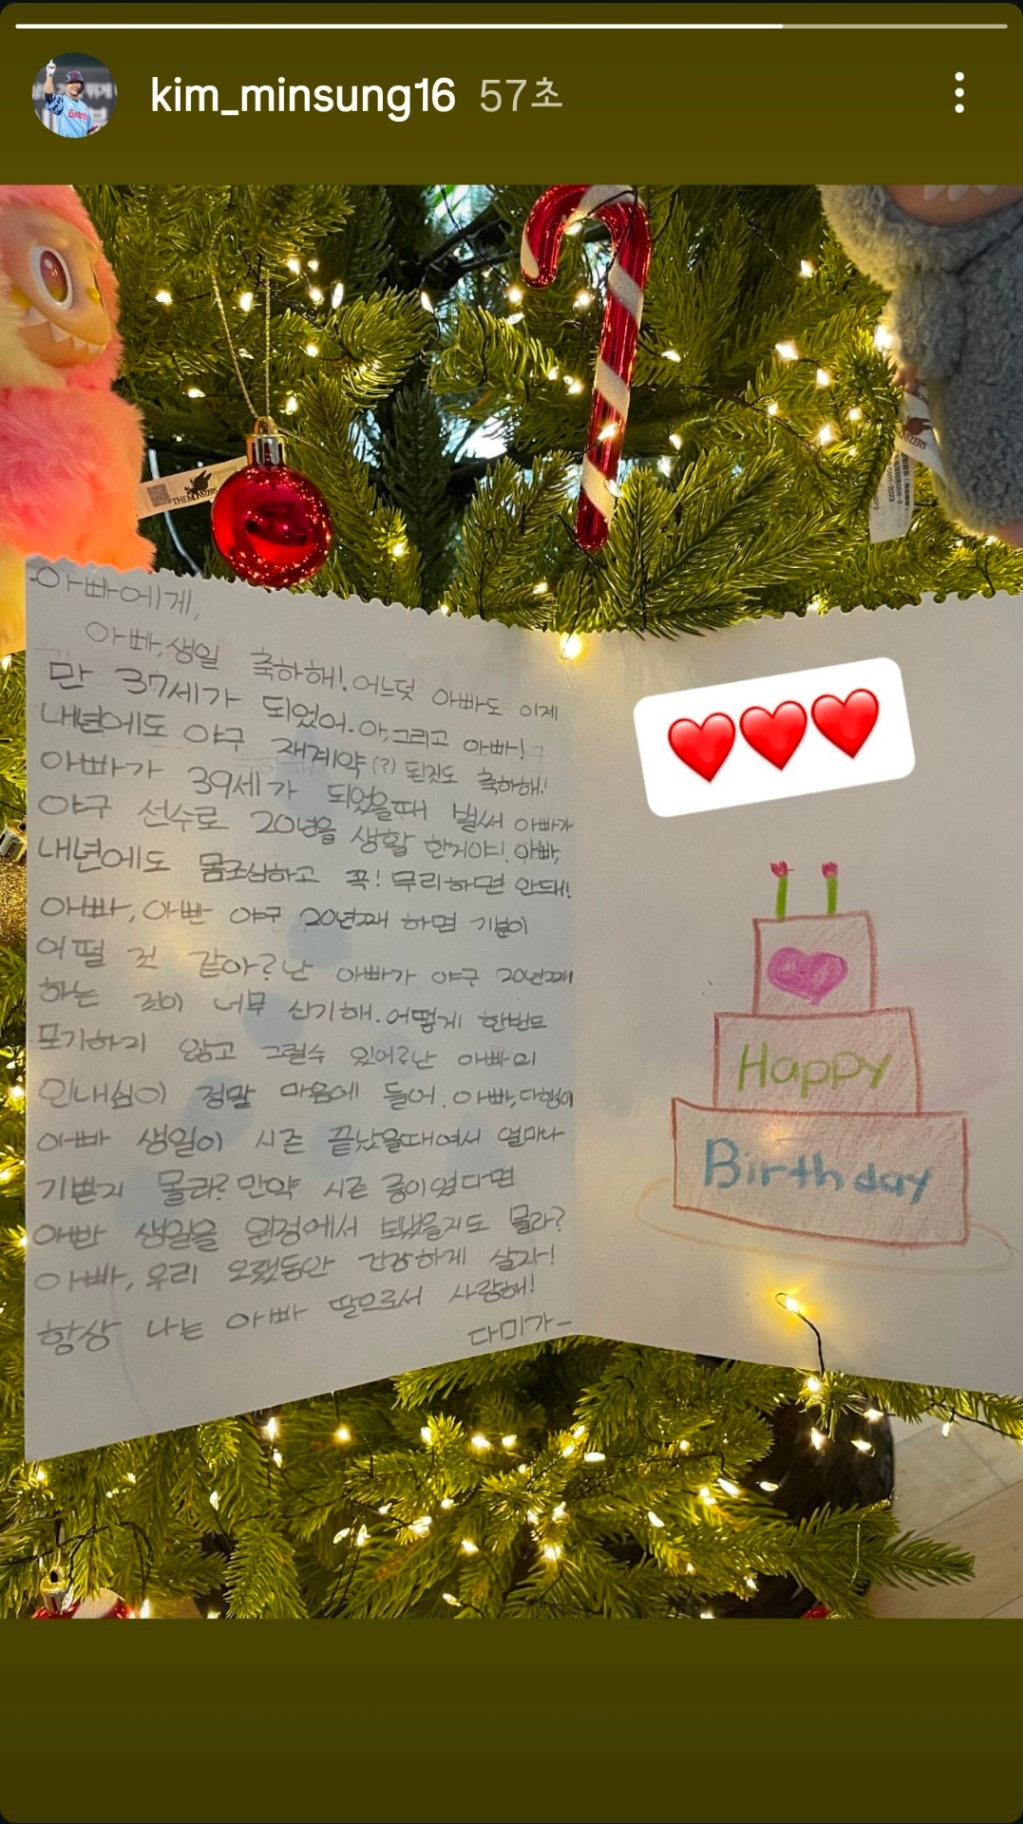 kim_minsung16 57초
THEMONSTERS
아빠에게,
아빠, 생일 축하해! 어느덧 아빠도 이제
만 37세가 되었어. 아, 그리고 아빠!
내년에도 야구 재계약(?) 된것도 축하해!
아빠가 39세가 되었을때 벌써 아빠가
야구 선수로 20년을 생활 한거야! 아빠,
내년에도 몸조심하고 꼭! 무리하면 안돼!
아빠, 아빤 야구 20년째 하면 기분이
어떨 것 같아? 난 아빠가 야구 20년째
하는 것이 너무 신기해. 어떻게 한번도
포기하지 않고 그럴수 있어? 난 아빠의
인내심이 정말 마음에 들어. 아빠, 다행히
아빠 생일이 시즌 끝났을때여서 얼마나
기쁜지 몰라? 만약 시즌 중이였다면
아빤 생일을 원정에서 보냈을지도 몰라?
아빠, 우리 오랫동안 건강하게 살자!
항상 나는 아빠 딸으로서 사랑해!
다미가-
Happy
Birthday